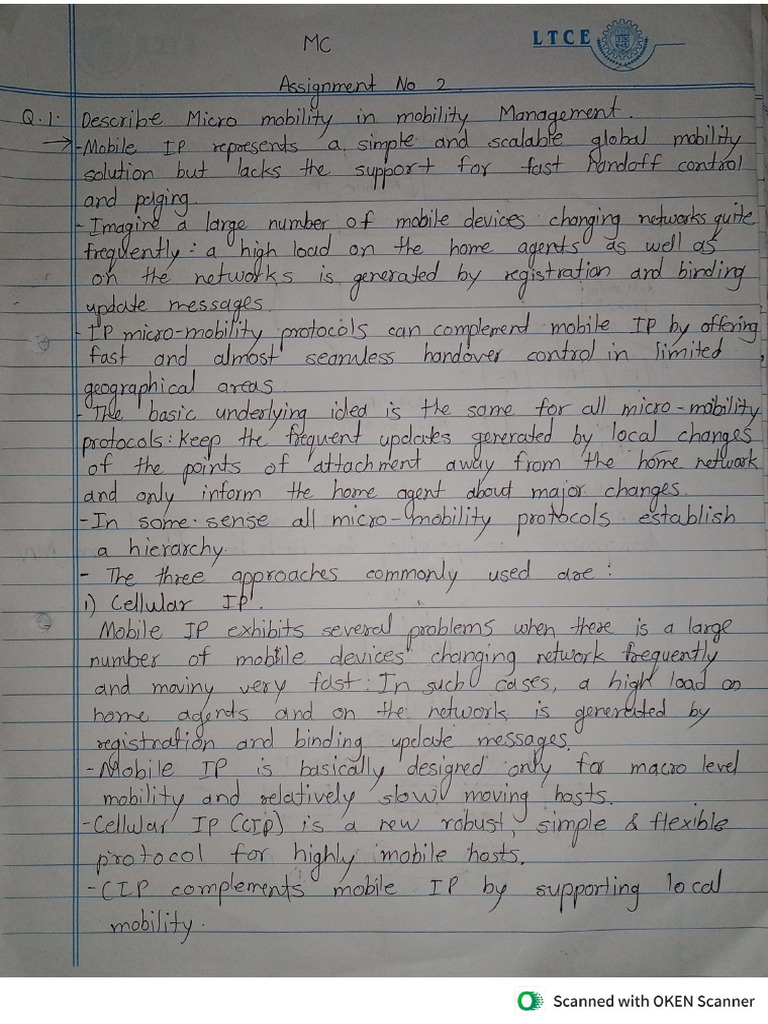 MC
LTCE
Assignment No 2
Q.1. Describe Micro mobility in mobility Management.
→ - Mobile IP represents a simple and scalable global mobility
solution but lacks the support for fast handoff control
and paging.
- Imagine a large number of mobile devices changing networks quite
frequently: a high load on the home agents as well as
on the networks is generated by registration and binding
update messages.
- IP micro-mobility protocols can complement mobile IP by offering
fast and almost seamless handover control in limited
geographical areas
- The basic underlying idea is the same for all micro-mobility
protocols: keep the frequent updates generated by local changes
of the points of attachment away from the home network
and only inform the home agent about major changes.
- In some sense all micro-mobility protocols establish
a hierarchy.
- The three approaches commonly used are:
i) Cellular IP.
Mobile IP exhibits several problems when there is a large
number of mobile devices changing network frequently
and moving very fast. In such cases, a high load on
home agents and on the network is generated by
registration and binding update messages.
- Mobile IP is basically designed only for macro level
mobility and relatively slow moving hosts.
- Cellular IP (CIP) is a new robust, simple & flexible
protocol for highly mobile hosts.
- CIP complements mobile IP by supporting local
mobility.
Scanned with OKEN Scanner